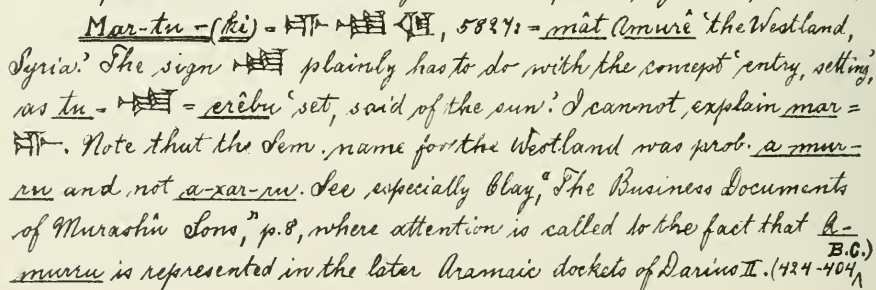 Mar-tu-(ki) = 𒈥 𒌅 𒆠, 5827: = mât Amurê ‘the Westland,
Syria.’ The sign 𒌅 plainly has to do with the concept ‘entry, setting,’
as tu = 𒌅 = erêbu ‘set, said of the sun.’ I cannot explain mar =
𒈥. Note that the Sem. name for the Westland was prob. a-mur-
ru and not a-xar-ru. See especially Clay, “The Business Documents
of Murashû Sons,” p.8, where attention is called to the fact that A-
murru is represented in the later Aramaic dockets of Darius II. (424-404 B.C.)